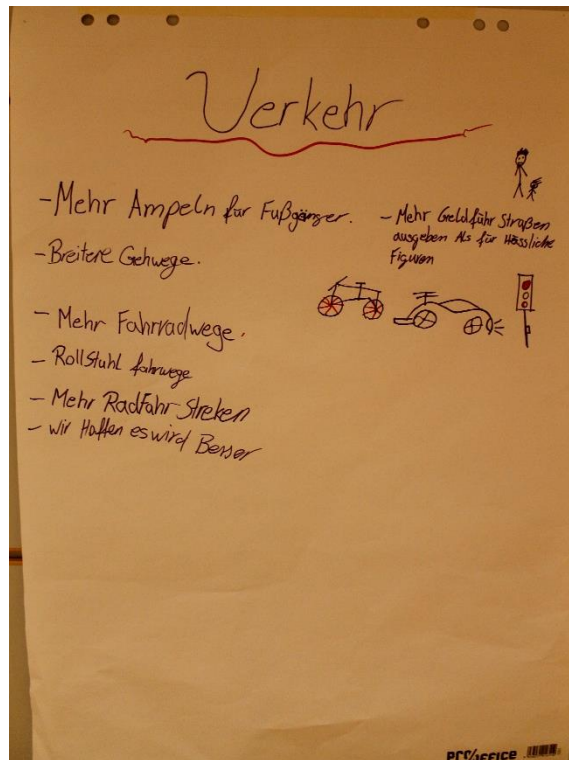 Verkehr
-Mehr Ampeln für Fußgänger.
-Breitere Gehwege.
- Mehr Fahrradwege.
- Rollstuhl fahrwege
- Mehr Radfahr-Streken
- wir Haffen es wird Besser
- Mehr Geld führ Straßen
ausgeben Als für Hässliche
Figuren